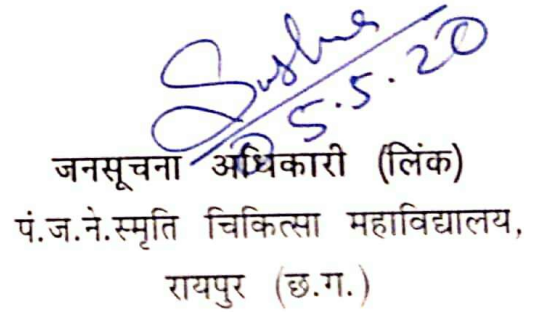 05.5.20
जनसूचना अधिकारी (लिंक)
पं.ज.ने.स्मृति चिकित्सा महाविद्यालय,
रायपुर (छ.ग.)